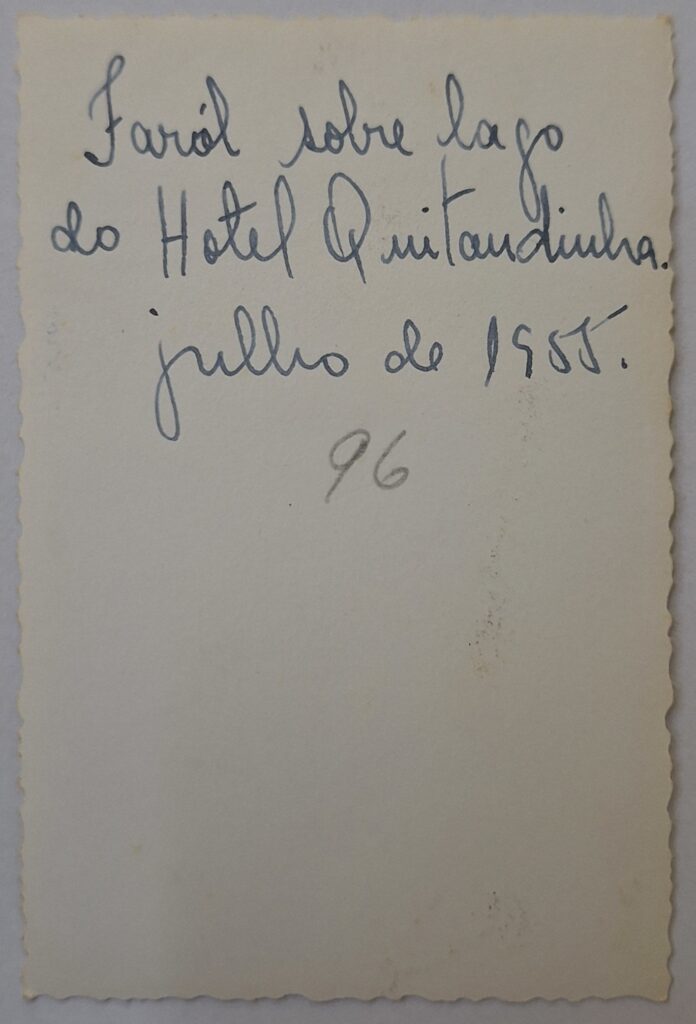 Faról sobre lago
do Hotel Quitandinha.
julho de 1955.
96